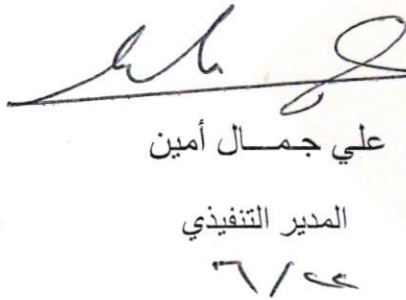 علي جمال أمين
المدير التنفيذي
٦/٢٢